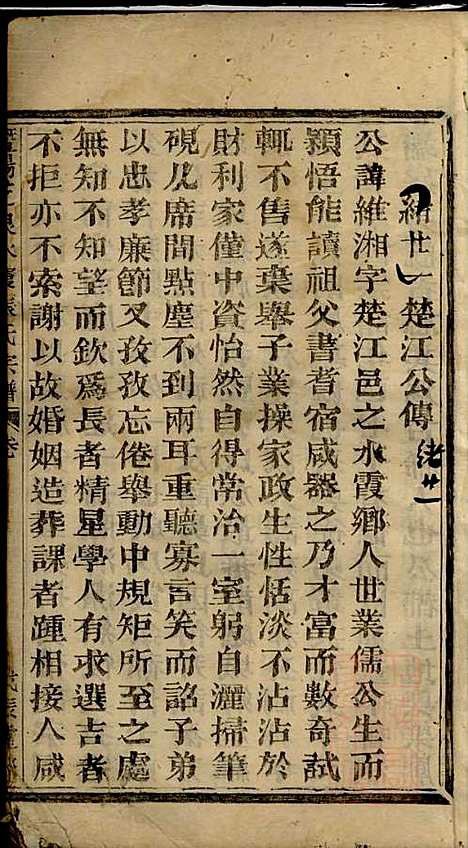 緒廿一 楚江公傳 緒廿一
公諱維湘字楚江邑之水霞鄉人世業儒公生而
穎悟能讀祖父書耆宿咸器之乃才富而數奇試
輒不售遂棄舉子業操家政生性恬淡不沾沾於
財利家僅中資怡然自得常治一室躬自灑掃筆
硯几席間點塵不到兩耳重聽寡言笑而詔子弟
以忠孝廉節又孜孜忘倦舉動中規矩所至之處
無知不知望而欽為長者精星學人有求選吉者
不拒亦不索謝以故婚姻造葬課者踵相接人咸
氏宗譜 卷